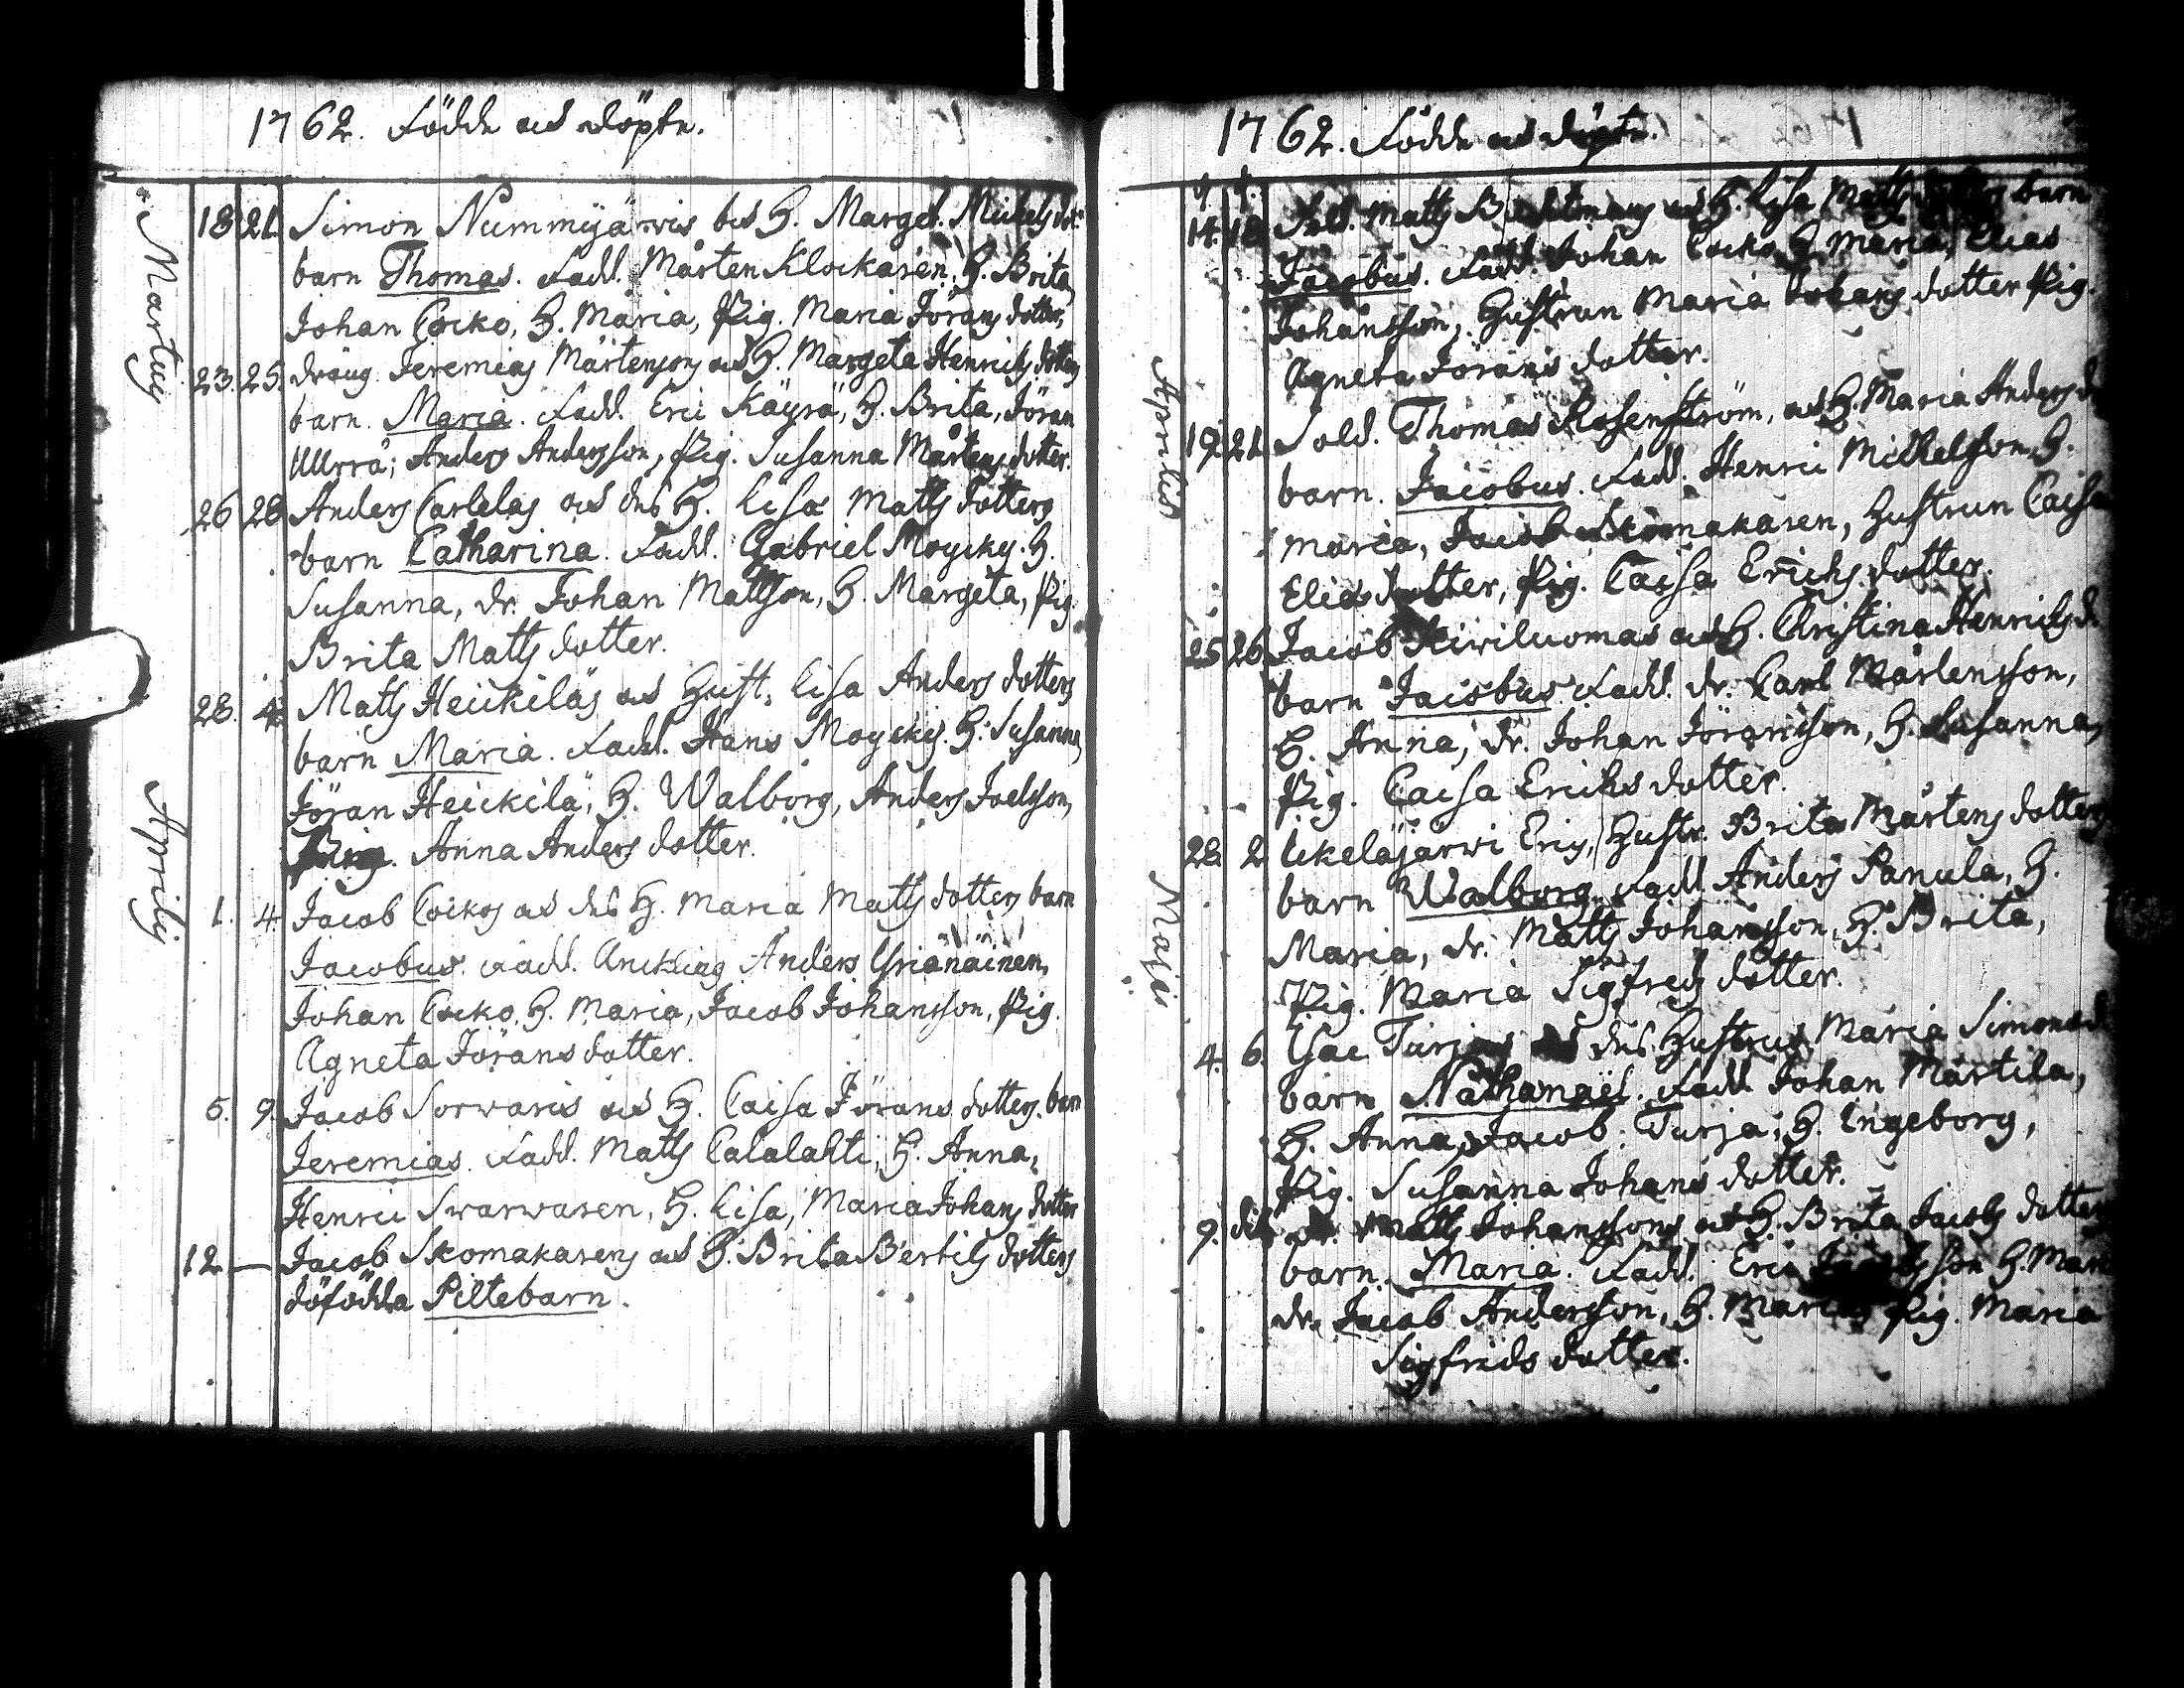 1762. Födde och döpte.
Martius
18. 21. Simon Nummijärwis och H. Marget. Mickels dot.
barn Thomas. Fadd. Mårten Klockaren, H. Brita,
Johan Cocko, H. Maria, Pig. Maria Jörans dotter,
23. 25. dräng Jeremias Mårtensons och H. Margeta Henrichs dotters
barn. Maria. Fadd. Eric Käyrä, H. Brita, Jöran
Ulrra, Anders Andersson, Pig. Susanna Mårtens dotter.
26 28 Anders Carlelas och des H. Lisa Matts dotters
barn Catharina. Fadd. Gabriel Moycky. H.
Susanna, dr. Johan Mattson, H. Margeta, Pig.
Brita Matts dotter.
28. 4. Matts Heickiläs och Hust. Lisa Anders dotters
barn Maria. Fadd. Hans Moycky. H. Susanna,
Jöran Heickilä, H. Walborg, Anders Joelsson,
Pig. Anna Anders dotter.
Aprilis
1. 4 Jacob Cockos och des H. Maria Matts dotters barn
Jacobus. Fadd. Anders Yrjänäinen,
Johan Cocko, H. Maria, Jacob Johansson, Pig.
Agneta Jörans dotter.
5. 9. Jacob Sorwaris och H. Caisa Jörans dotters. barn
Jeremias. Fadd. Matts Calalahti, H. Anna,
Henric Swarwaren, H. Lisa, Maria Johans dotter
12 — Jacob Skomakarens och H. Brita Bertils dotters
döfödda Piltebarn.
1762. Födde och döpte.
Aprilis
14. 18 Sold. Matts och H. Lisa Matts dotters barn
Jacobus. Fadd. Johan Cocko, H. Maria, Elias
Johansson, Hustrun Maria Johans dotter Pig.
Agneta Jörans dotter.
19. 21. Sold. Thomas Rosenström, och H. Maria Anders d
barn. Jacobus. Fadd. Henric Michelsson, H.
Maria, Jacob Skomakaren, Hustrun Caisa
Elias dotter, Pig. Caisa Erichs dotter.
25 26. Jacob Kiwiluomas och H. Christina Henrichs d
barn Jacobus. Fadd. dr. Carl Mårtensson,
H. Anna, dr. Johan Jöransson, H. Susanna,
Pig. Caisa Erichs dotter.
Maji
28. 2 Ukeläjärwi Erics, Hustr. Brita Mårtens dotters
barn Walborg. Fadd. Anders Panula, H.
Maria, dr. Matts Johansson, H. Brita,
Pig. Maria Sigfreds dotter.
4. 6. Isac Turjas och des Hustrus Maria Simonsd
barn Nathanaël. Fadd. Johan Martila,
H. Anna, Jacob Turja, H. Engeborg,
Pig. Susanna Johans dotter.
9. dr. Matts Johanssons och H. Brita Jacobs dotters
barn. Maria. Fadd. Eric H. Mari
dr. Jacob Andersson, H. Maria, Pig. Maria
Sigfrids dotter.